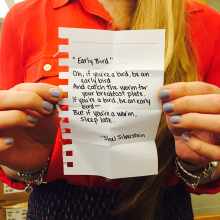 "Early Bird"
Oh, if you're a bird, be an
early bird
And catch the worm for
your breakfast plate.
If you're a bird, be an early
bird—
But if you're a worm,
sleep late.
-Shel Silverstein